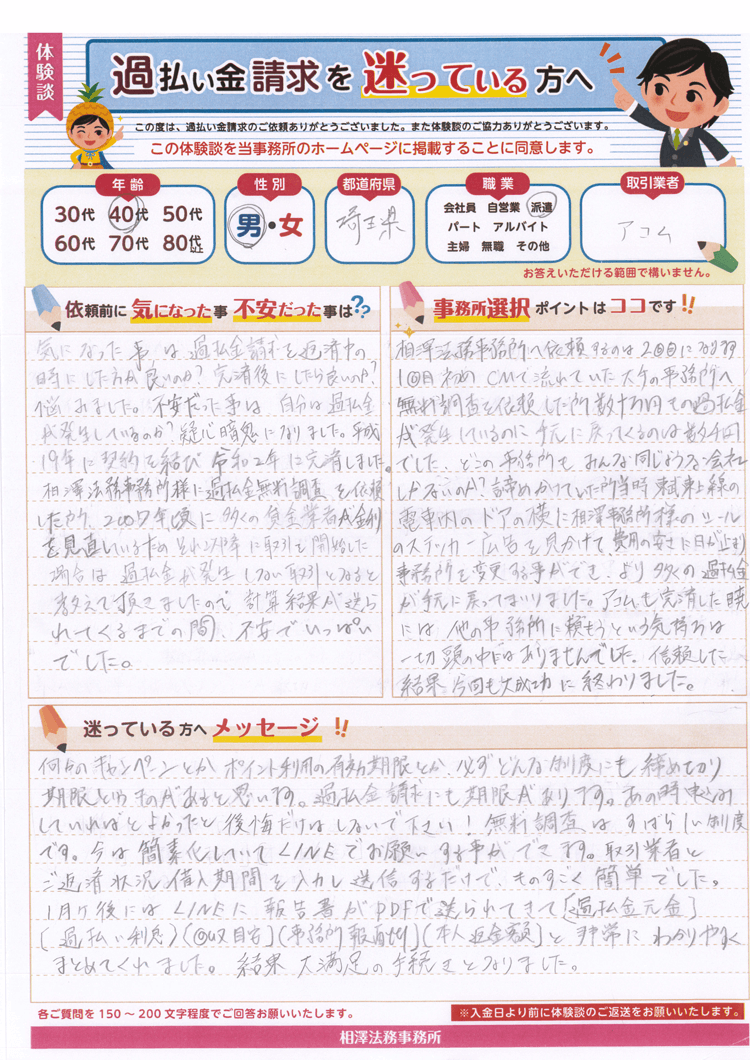 体験談
過払い金請求を迷っている方へ
この度は、過払い金請求のご依頼ありがとうございました。また体験談のご協力ありがとうございます。
この体験談を当事務所のホームページに掲載することに同意します。
年齢
30代 40代 50代
60代 70代 80代以上
性別
男・女
都道府県
埼玉県
職業
会社員 自営業 派遣
パート アルバイト
主婦 無職 その他
取引業者
アコム
お答えいただける範囲で構いません。
依頼前に気になった事 不安だった事は??
気になった事は過払金請求を返済中の
時にした方が良いのか?完済後にしたら良いのか?
悩みました。不安だった事は自分は過払金
が発生しているのか?疑心暗鬼になりました。平成
19年に契約を結び令和2年に完済しました。
相澤法務事務所様に過払金無料調査を依頼
した所、2007年頃に多くの貸金業者が金利
を見直しているため それ以降に取引を開始した
場合は過払金が発生しない取引となると
教えて頂きましたので、計算結果が送ら
れてくるまでの間、不安でいっぱい
でした。
事務所選択ポイントはココです!!
相澤法務事務所へ依頼するのは2回目になります
1回目初めCMで流れていた大手の事務所へ
無料調査を依頼した所数十万円での過払金
が発生しているのに手元に戻ってくるのは数千円
でした。どこの事務所もみんな同じような会社
しかないのか?諦めかけていた所当時東武東上線の
電車内のドアの横に相澤事務所様のシール
のステッカー広告を見かけて、費用の安さに目が止まり
事務所を変更する事ができ、より多くの過払金
が手元に戻ってまいりました。アコムも完済した暁
には、他の事務所に頼もうという気持ちは
一切頭の中にはありませんでした。信頼した
結果今回も大成功に終わりました。
迷っている方へメッセージ!!
何分のキャンペーンとか ポイント利用の有効期限とか、必ずどんな制度にも締め切り
期限というものがあると思います。過払金請求にも期限があります。あの時申込み
していればとよかったと後悔だけはしないで下さい!無料調査はすばらしい制度
です。今は簡素化していてLINEでお願いする事ができます。取引業者と
ご返済状況借入期間を入力し送信するだけで、ものすごく簡単でした。
1月ヶ後にはLINEに報告書がPDFで送られてきて〔過払金元金〕
(過払い利息)(回収目安)(事務所報酬)(本人返金額)と非常にわかりやすく
まとめてくれました。結果大満足の手続きとなりました。
各ご質問を150〜200文字程度でご回答お願いいたします。
※入金日より前に体験談のご返送をお願いいたします。
相澤法務事務所